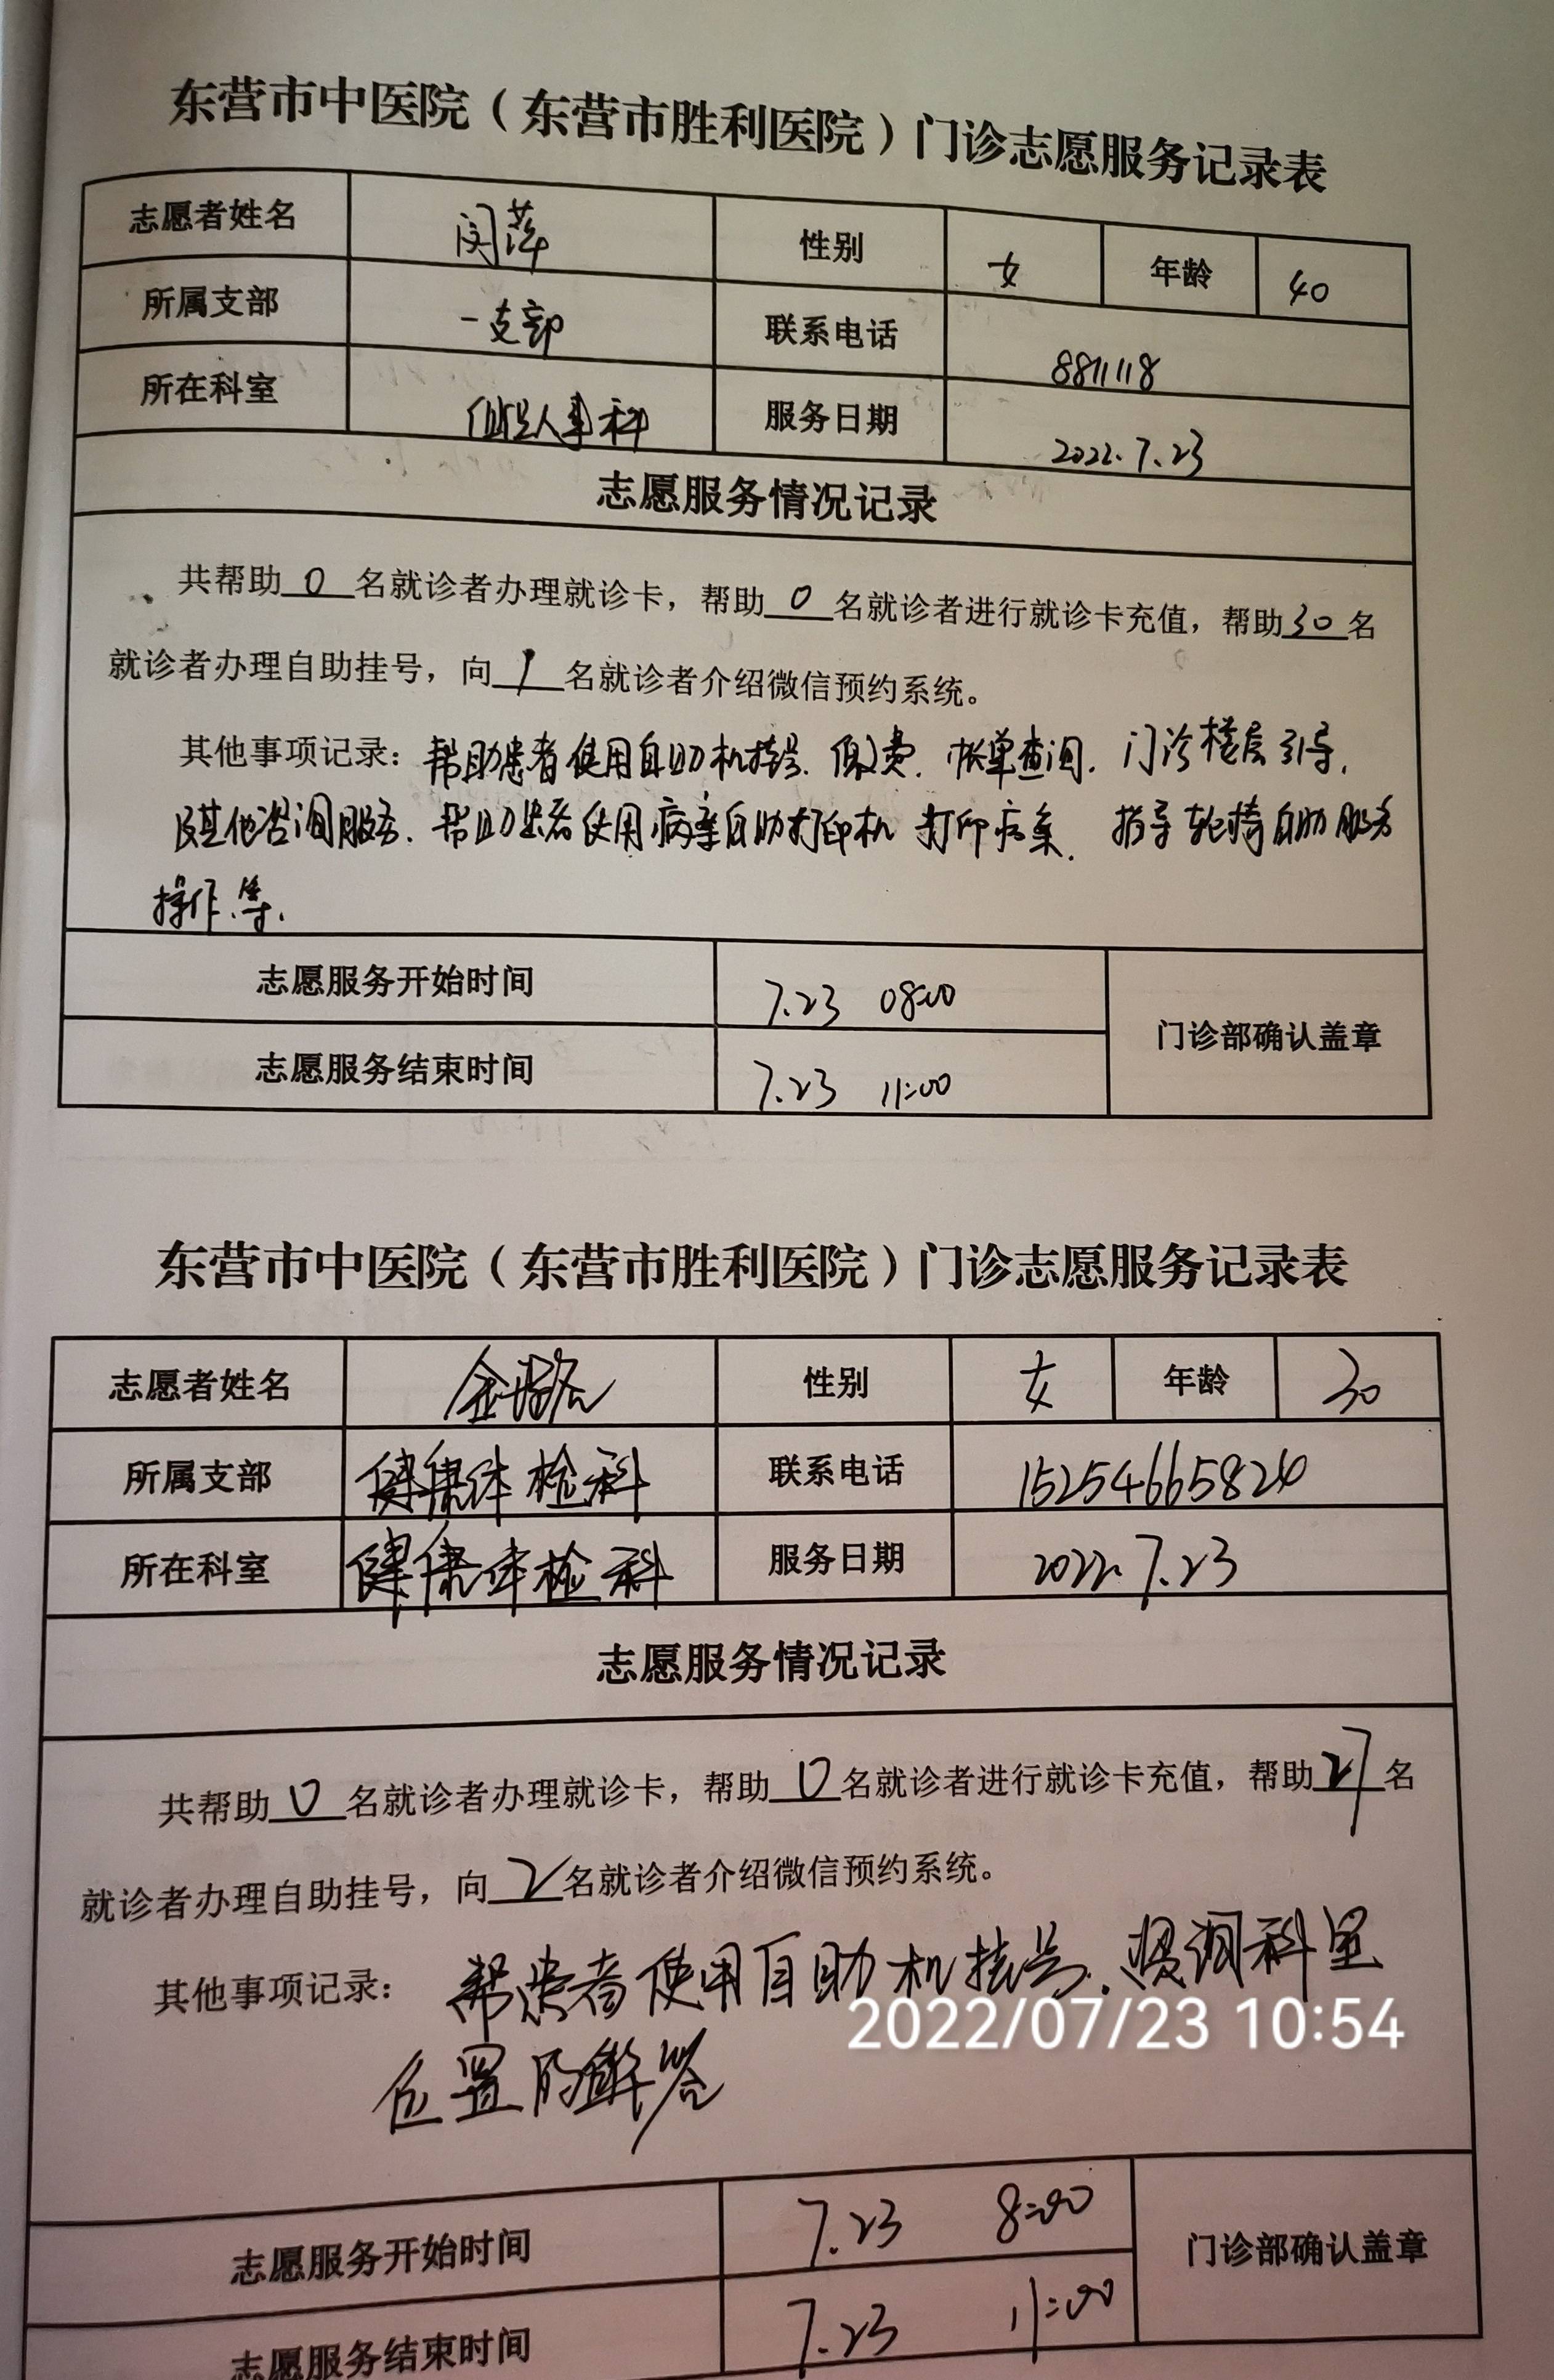 东营市中医院（东营市胜利医院）门诊志愿服务记录表
志愿者姓名 闵萍 性别 女 年龄 40
所属支部 一支部 联系电话 8811118
所在科室 人事科 服务日期 2022.7.23
志愿服务情况记录
共帮助0名就诊者办理就诊卡，帮助0名就诊者进行就诊卡充值，帮助30名
就诊者办理自助挂号，向1名就诊者介绍微信预约系统。
其他事项记录：帮助患者使用自助机挂号、缴费、帐单查询、门诊楼层引导，
及其他咨询服务、帮助患者使用病案自助打印机打印病案、指导轮椅自助服务
操作等、
志愿服务开始时间 7.23 08:00
门诊部确认盖章
志愿服务结束时间 7.23 11:00
东营市中医院（东营市胜利医院）门诊志愿服务记录表
志愿者姓名 性别 女 年龄 30
所属支部 健康体检科 联系电话
所在科室 健康体检科 服务日期 2022.7.23
志愿服务情况记录
共帮助0名就诊者办理就诊卡，帮助0名就诊者进行就诊卡充值，帮助27名
就诊者办理自助挂号，向2名就诊者介绍微信预约系统。
其他事项记录：帮患者使用自助机挂号、询科室
2022/07/23 10:54
位置的解答
志愿服务开始时间 7.23 8:00
门诊部确认盖章
志愿服务结束时间 7.23 11:00